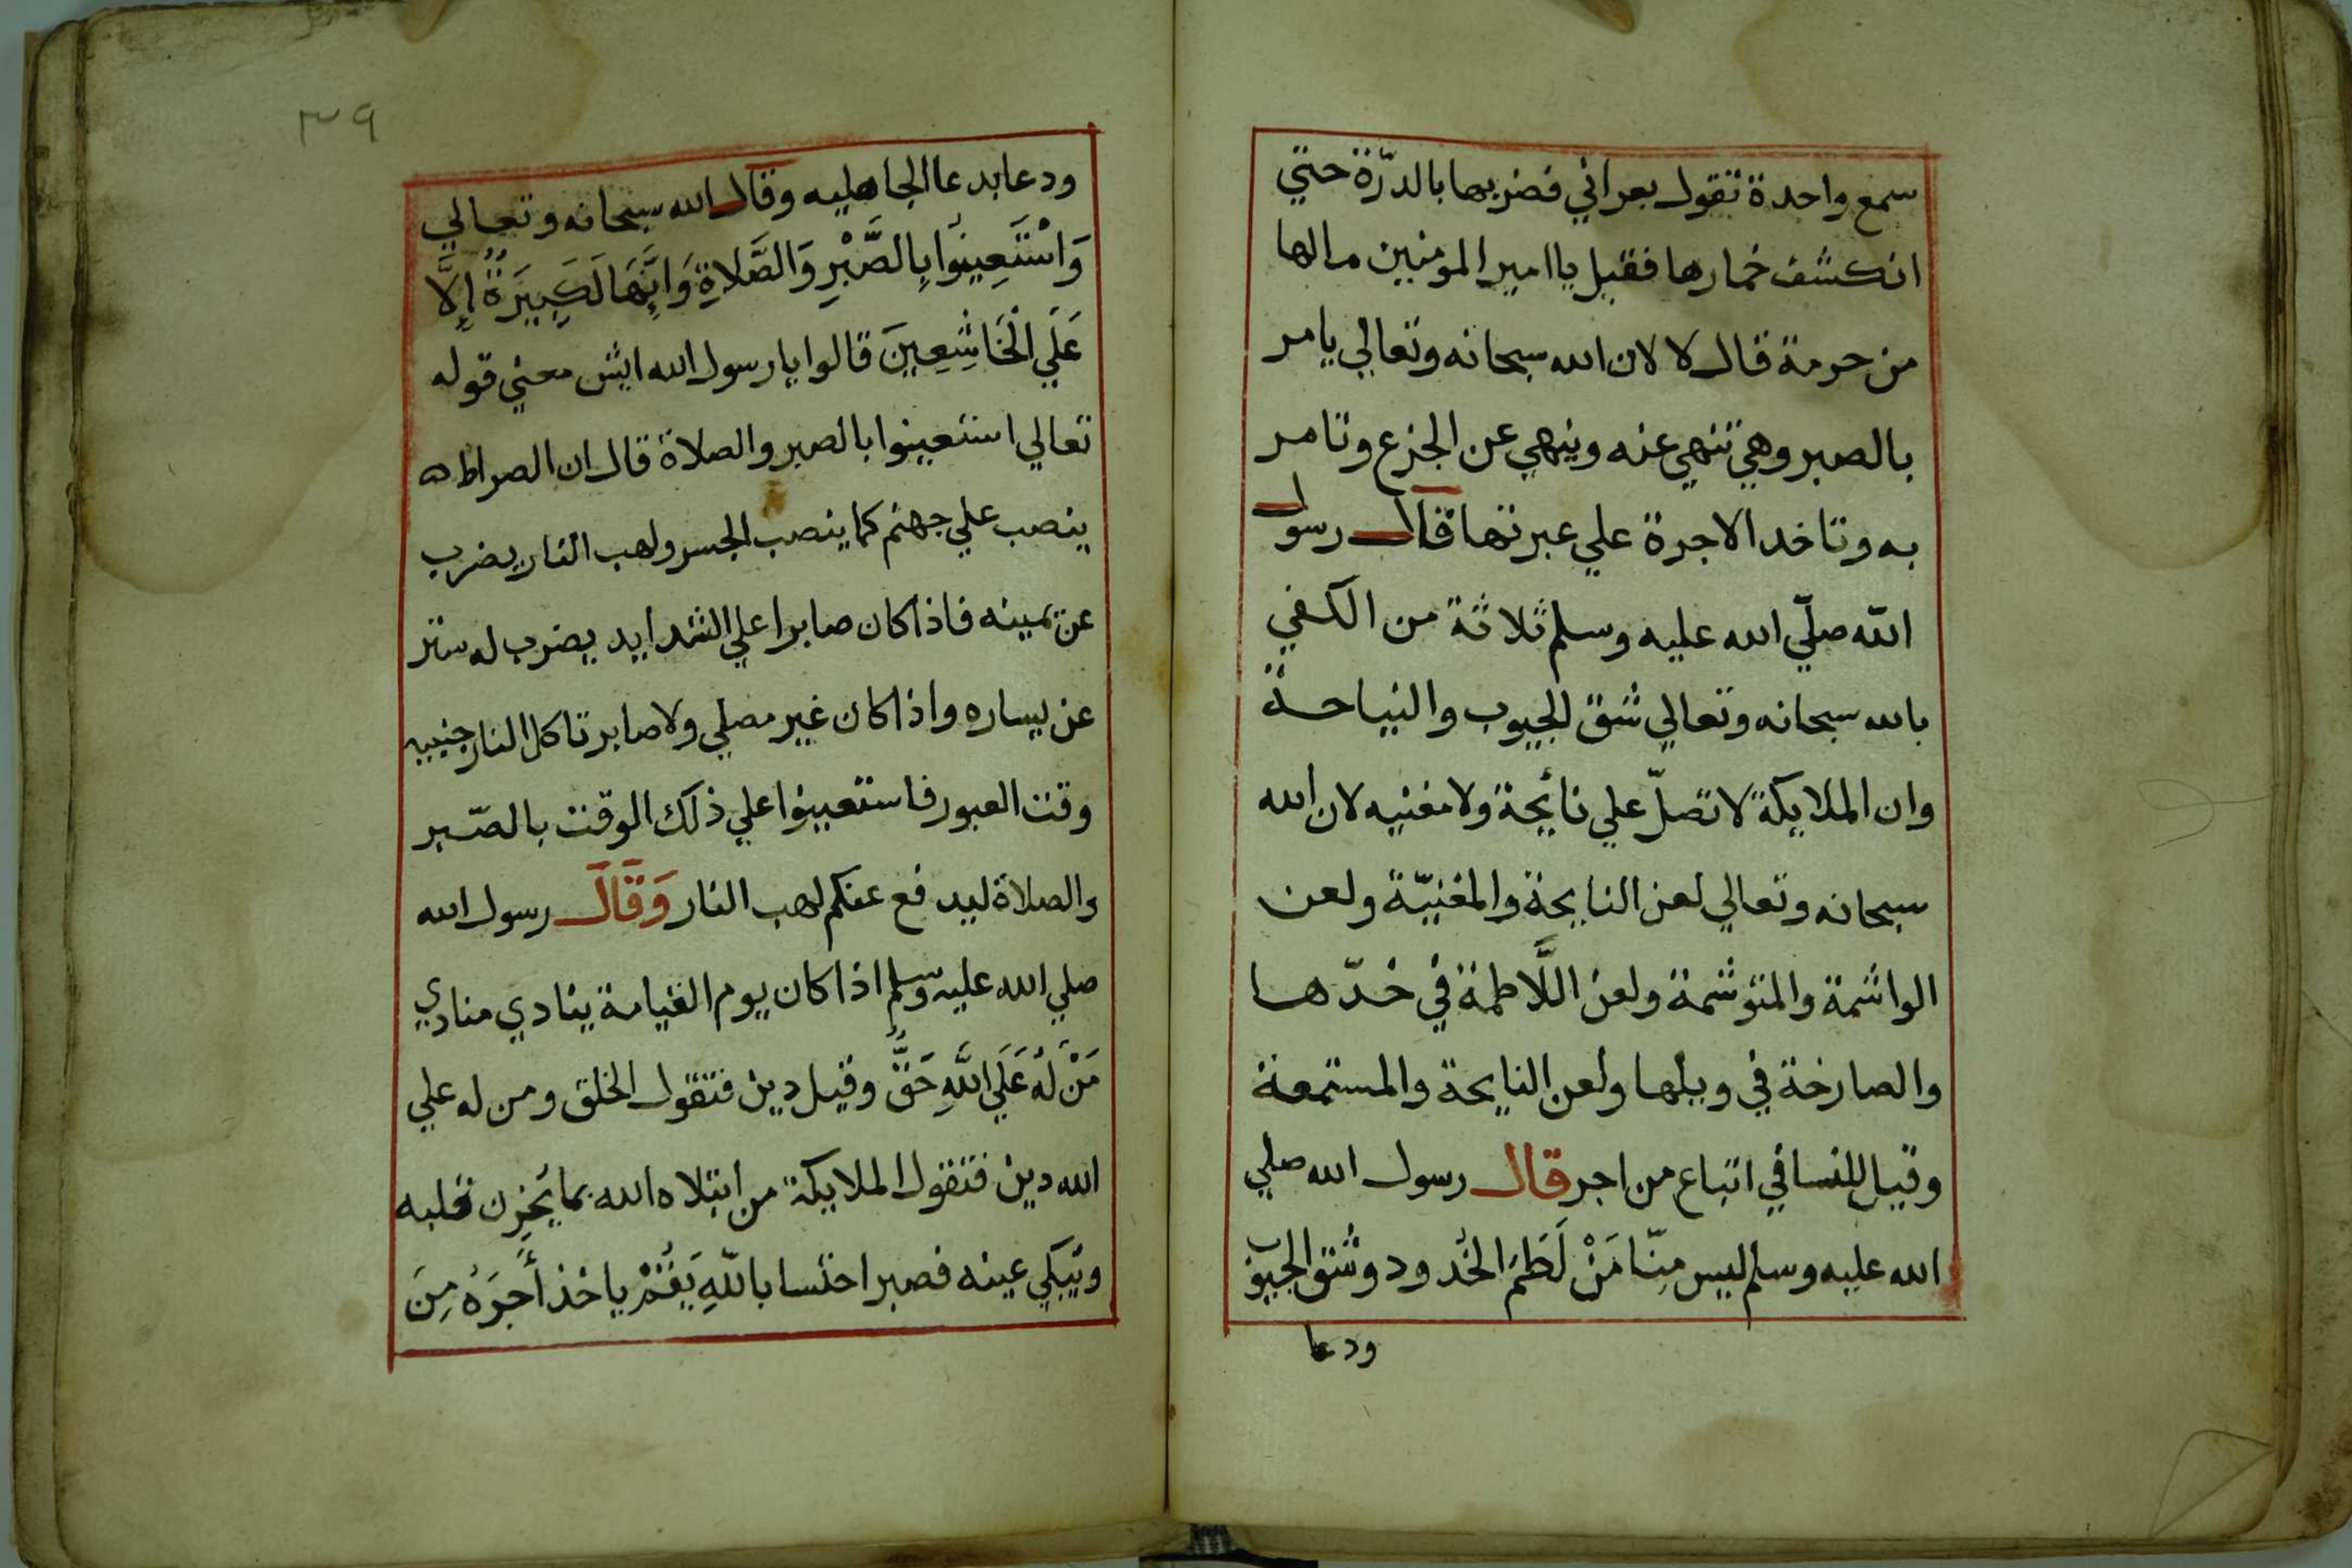 سمع واحدة تقول بعراني فضربها بالدرّة حتي
انكشف خمارها فقيل يا امير المومنين مالها
من حرمة قال لا لان الله سبحانه وتعالي يامر
بالصبر وهي تنهي عنه وينهي عن الجزع وتامر
به وتاخد الاجرة علي عبرتها قال رسول
الله صلّي الله عليه وسلم ثلاثة من الكفي
بالله سبحانه وتعالي شق الجيوب والنياحة
وان الملايكة لا تصلّ علي نائحة ولا مغنيه لان الله
سبحانه وتعالي لعن النايحة والمغنيّة ولعن
الواشمة والمتوشمة ولعن اللَّاطمة في خدّها
والصارخة في ويلها ولعن النايحة والمستمعة
وقيل للنسا في اتباع من اجر قال رسول الله صلي
الله عليه وسلم ليس مِنّا مَنْ لَطَمَ الخُدود وشق الجيوب
ودعا
٣٩
ودعا بدعا الجاهليه وقال الله سبحانه وتعالي
وَاسْتَعِينُوا بِالصَّبْرِ وَالصَّلاةِ وَاِنَّهَا لَكَبِيَرةٌ إِلَّا
عَلَي الْخَاشِعِينَ قالوا يا رسول الله ايش معني قوله
تعالي استعينوا بالصبر والصلاة قال ان الصراط ه
ينصب علي جهنم كما ينصب الجسر ولهب النار يضرب
عن يمينه فاذا كان صابرا علي الشدايد يضرب له ستر
عن يساره واذا كان غير مصلي ولا صابر تاكل النار جنبيه
وقت العبور فاستعينوا علي ذلك الوقت بالصّبر
والصلاة ليدفع عنكم لهب النار وَقَالَ رسول الله
صلي الله عليه وسلم اذا كان يوم القيامة ينادي منادي
مَنْ لَهُ عَلَي اللَّهِ حَقٌّ وقيل دين فتقول الخلق ومن له علي
الله دين فتقول الملايكة من ابتلاه الله بما يُحْزِن قلبه
ويُبكي عينه فصبر احتسا باللّهِ يَقُمْ ياخذ أَجرَهُ مِنَ